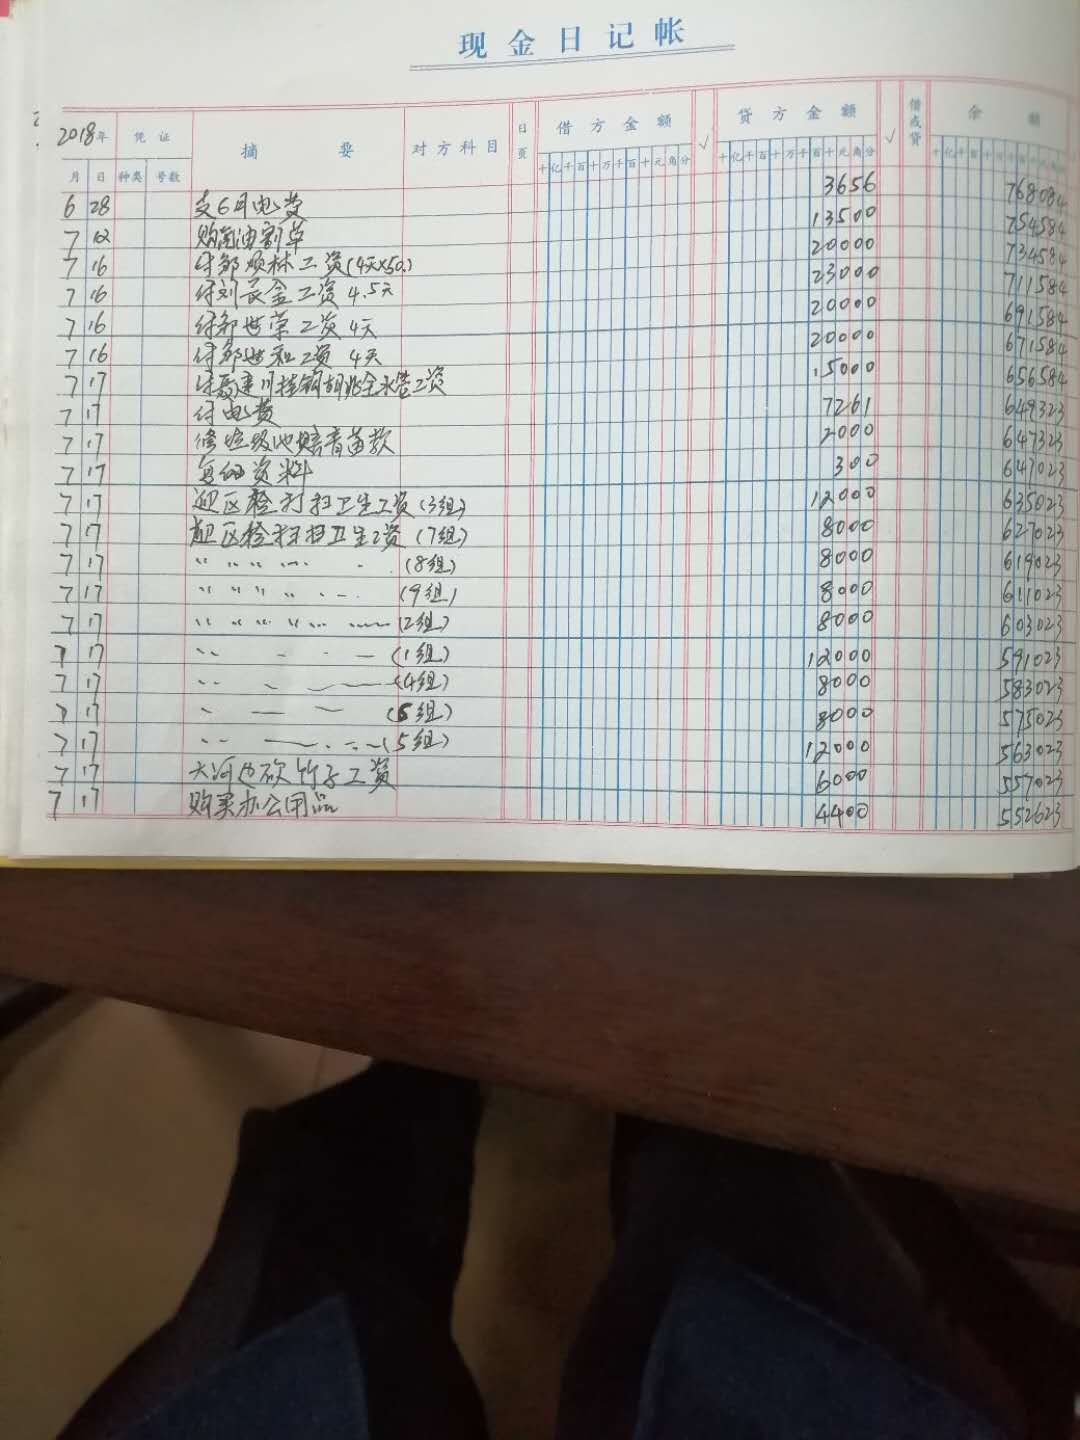 现金日记帐
2018年 凭证 摘要 对方科目 日页 借方金额 √ 贷方金额 √ 借或贷 余额
月 日 种类 号数 十亿千百十万千百十元角分 十亿千百十万千百十元角分
6 28 支6月电费 3656 768084
7 12 购商油割草 13500 754584
7 16 付邹顺林工资(4天×50.) 20000 734584
7 16 付刘长金工资 4.5天 23000 711584
7 16 付邹世荣工资 4天 20000 691584
7 16 付邹世和工资 4天 20000 671584
7 17 水管工资 15000 656584
7 17 付电费 7261 649323
7 17 修垃圾池赔青苗款 2000 647323
7 17 复印资料 300 647023
7 17 迎区检打扫卫生工资(3组) 12000 635023
7 17 迎区检打扫卫生工资(7组) 8000 627023
7 17 〃 〃 〃 〃 (8组) 8000 619023
7 17 〃 〃 〃 〃 (9组) 8000 611023
7 17 〃 〃 〃 〃 (2组) 8000 603023
7 17 〃 (1组) 12000 591023
7 17 〃 (4组) 8000 583023
7 17 〃 (6组) 8000 575023
7 17 〃 (5组) 12000 563023
7 17 大河边砍竹子工资 6000 557023
7 17 购买办公用品 4400 552623